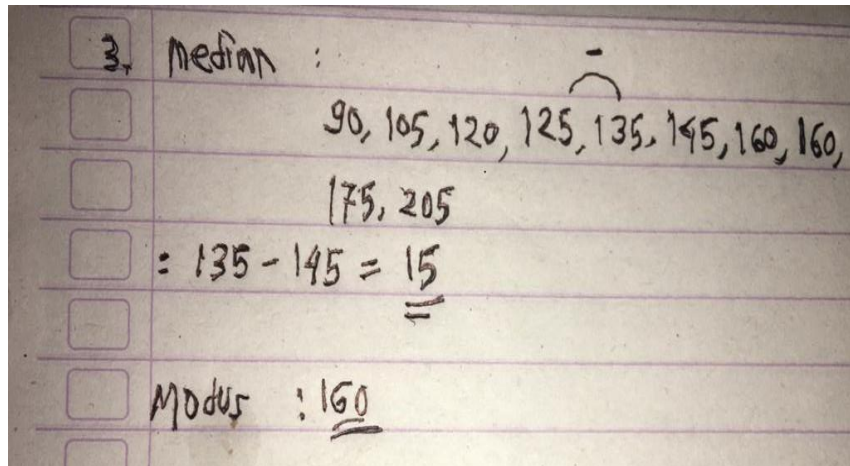 3. Median :
-
90, 105, 120, 125, 135, 145, 160, 160,
175, 205
= 135 - 145 = 15
Modus : 160